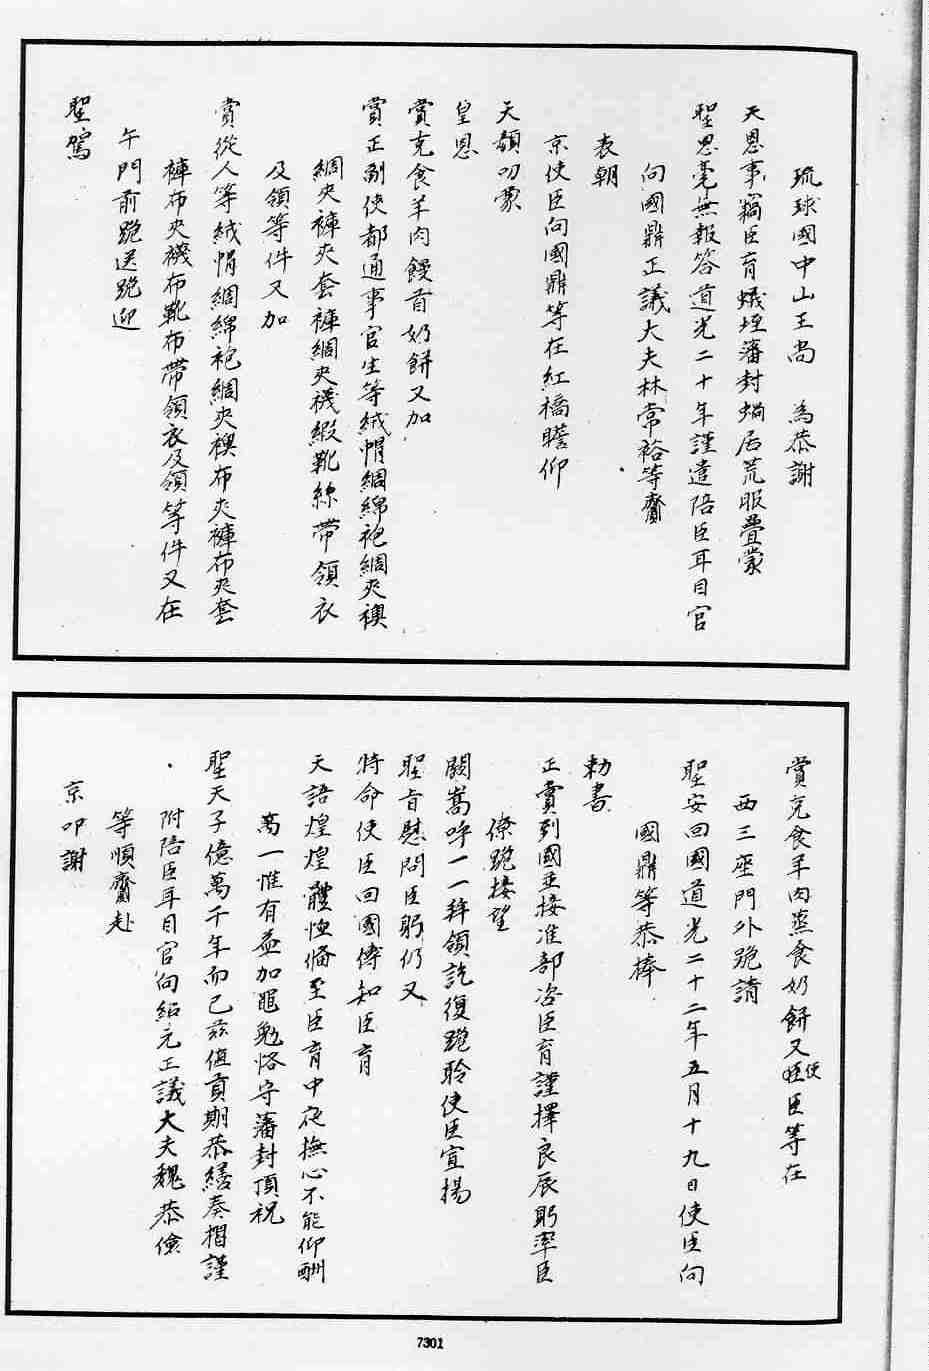 琉球國中山王尚　為恭謝
天恩事竊臣育蟻垤藩封蝸居荒服疊蒙
聖恩毫無報答道光二十年謹遣陪臣耳目官
向國鼎正議大夫林常裕等齎
表朝
京使臣向國鼎等在紅橋瞻仰
天顏叨蒙
皇恩
賞克食羊肉饅首奶餅又加
賞正副使都通事官生等絨帽綢綿袍綢夾襖
綢夾褲夾套褲綢夾襪緞靴絲帶領衣
及領等件又加
賞從人等絨帽綢綿袍綢夾襖布夾褲布夾套
褲布夾襪布靴布帶領衣及領等件又在
午門前跪送跪迎
聖駕
賞克食羊肉蒸食奶餅又使臣等在
西三座門外跪請
聖安回國道光二十二年五月十九日使臣向
國鼎等恭捧
勅書
正賚到國並接准部咨臣育謹擇良辰躬率臣
僚跪接望
闕嵩呼一一拜領訖復跪聆使臣宣揚
聖旨慰問臣躬仍又
特命使臣回國傳知臣育
天語煌煌體恤備至臣育中夜撫心不能仰酬
萬一惟有益加黽勉恪守藩封頂祝
聖天子億萬千年而已茲值貢期恭繕奏摺謹
附陪臣耳目官向紹元正議大夫魏恭儉
等順齎赴
京叩謝
7301